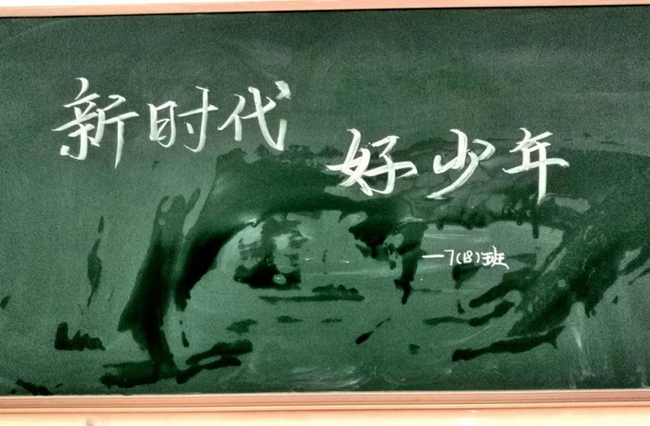 新时代
好少年
—7(18)班